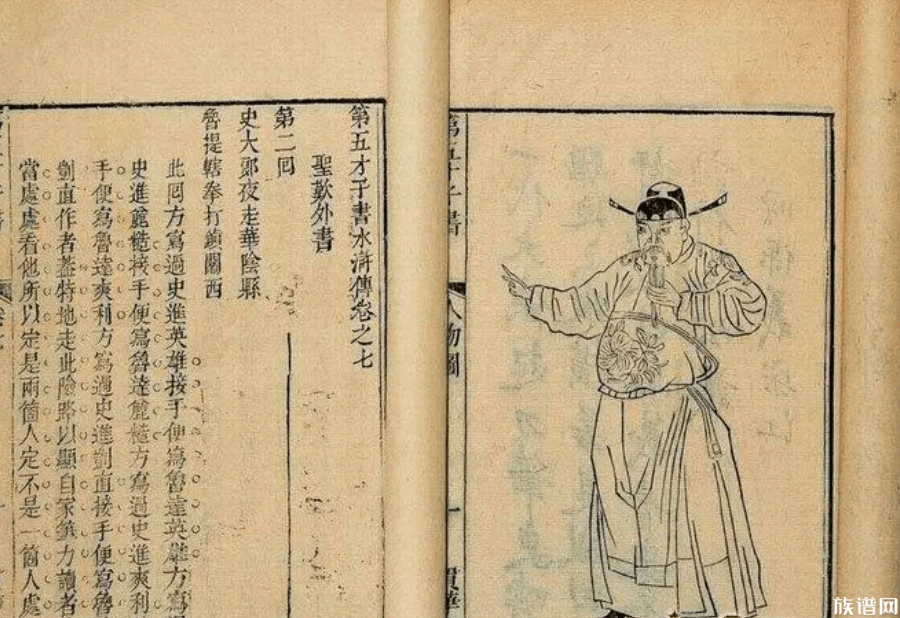 第五才子書水滸傳卷之七
聖歎外書
第二囘
史大郎夜走華陰縣
魯提轄拳打鎮關西
此囘方寫過史進英雄接手便寫魯達英雄方寫過
史進麄糙接手便寫魯達麄糙方寫過史進爽利
手便寫魯達爽利方寫過史進剴直接手便寫魯
剴直作者葢特地走此險路以顯自家筆力讀者
當處處看他所以定是兩箇人定不是一箇人處
第五才子書
人物圖
一
貫華
族谱网